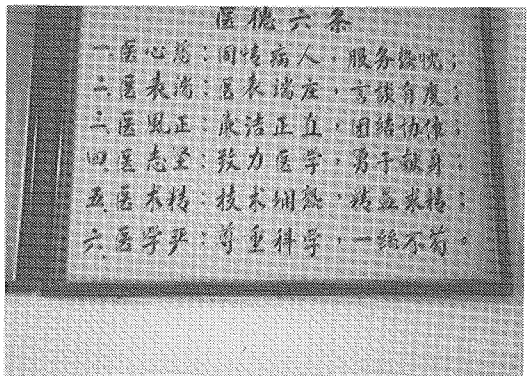 医德六条
一.医心慈：同情病人，服务谈忱；
二.医表端：医表端庄，言谈有度；
三.医风正：廉洁正直，团结协作；
四.医志圣：致力医学，勇于献身；
五.医术精：技术娴熟，精益求精；
六.医学严：尊重科学，一丝不苟。